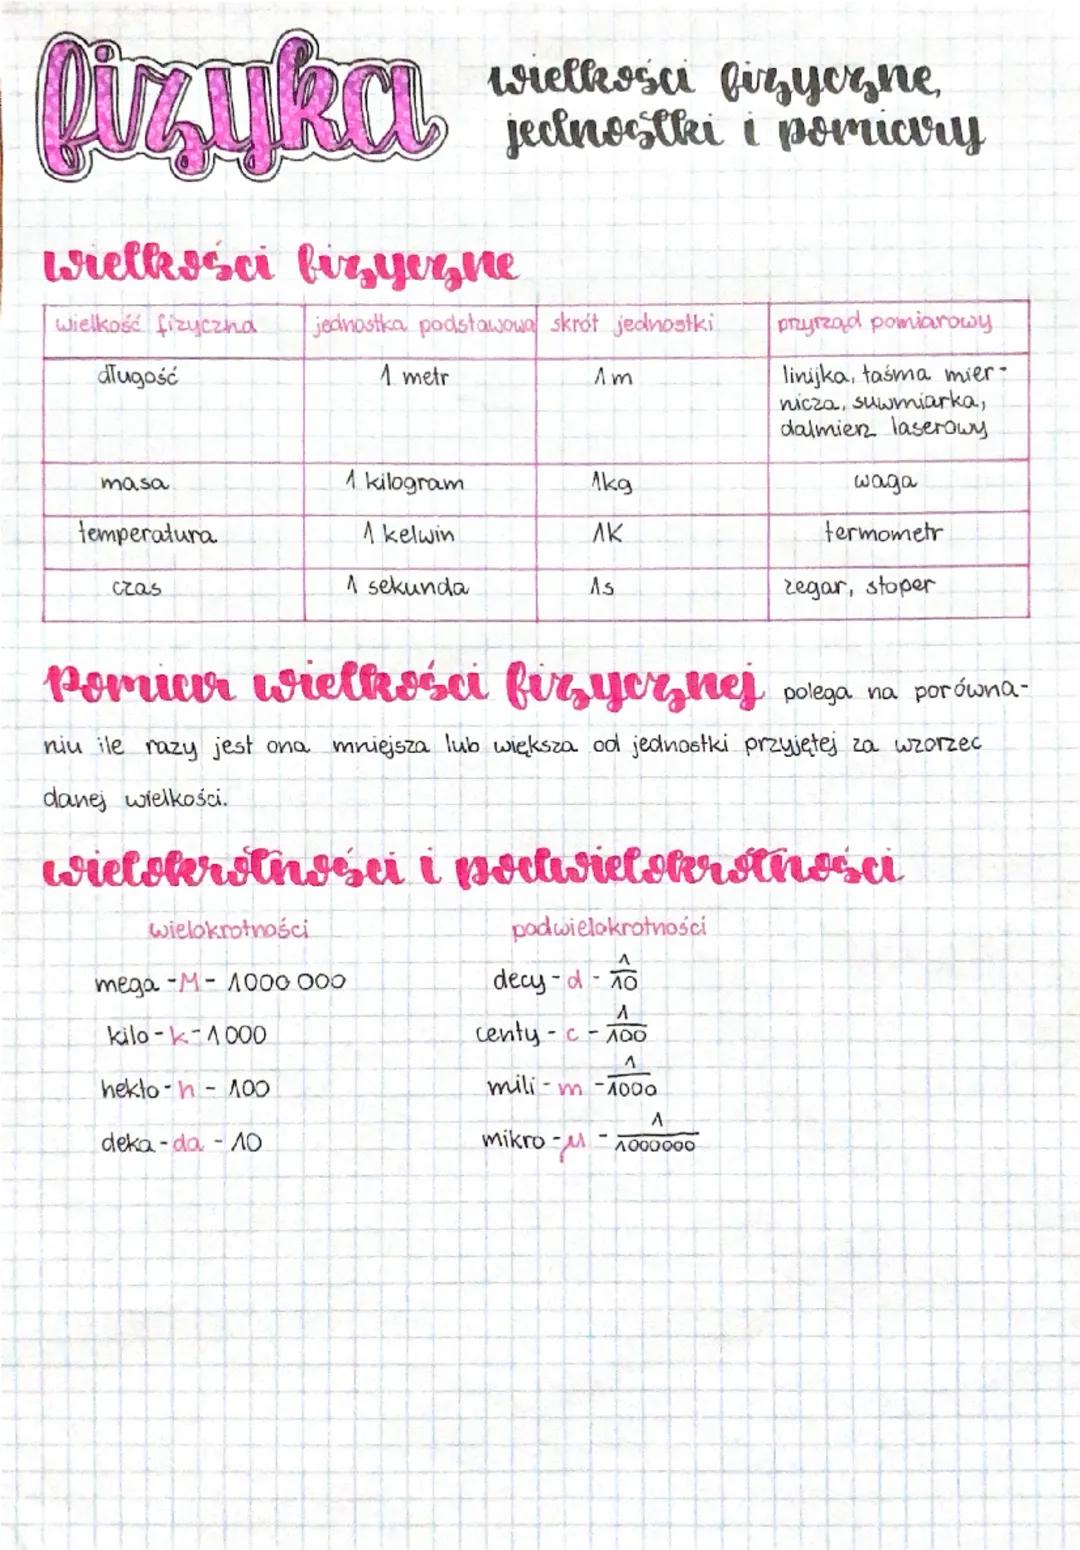 fizyka
wielkości fizyczne,
jednostki i pomiary
wielkości fizyczne
wielkość fizyczna jednostka podstawowa skrót jednostki przyrząd pomiarowy
długość 1 metr 1m linijka, taśma mier-
nicza, suwmiarka,
dalmierz laserowy
masa 1 kilogram 1kg waga
temperatura 1 kelwin 1K termometr
czas 1 sekunda 1s zegar, stoper
Pomiar wielkości fizycznej polega na porówna-
niu ile razy jest ona mniejsza lub większa od jednostki przyjętej za wzorzec
danej wielkości.
wielokrotności i podwielokrotności
wielokrotności podwielokrotności
mega - M - 1000 000 decy - d - 1/10
kilo - k - 1000 centy - c - 1/100
hekto - h - 100 mili - m - 1/1000
deka - da - 10 mikro - μ - 1/1000000